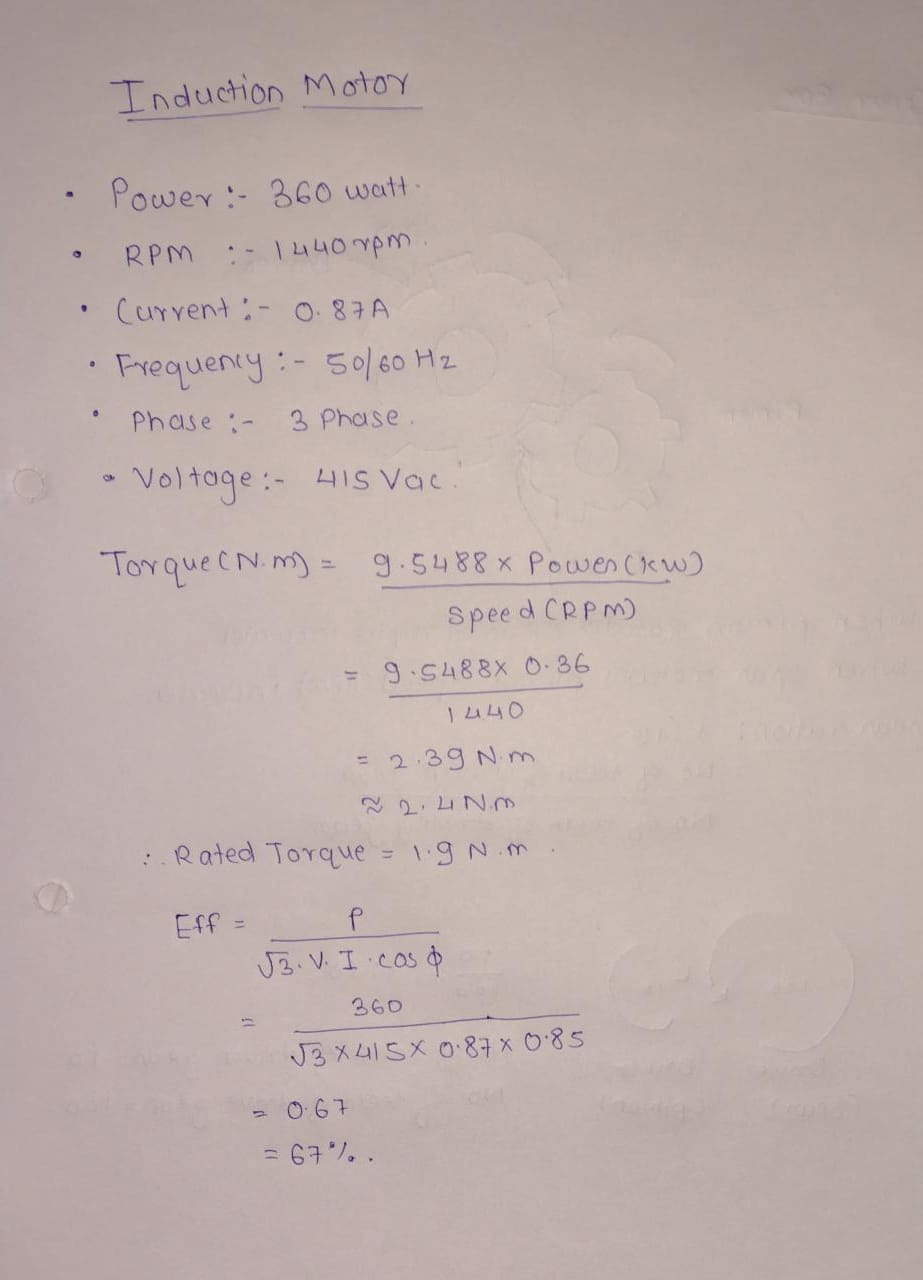 Induction Motor
• Power :- 360 watt.
• RPM :- 1440rpm.
• Current :- 0.87A
• Frequency :- 50/60 Hz
• Phase :- 3 Phase.
• Voltage :- 415 Vac.
Torque (N.m) = 9.5488 x Power (kw)
Speed (RPM)
= 9.5488x 0.36
1440
= 2.39 N.m
≈ 2.4 N.m
∴ Rated Torque = 1.9 N.m.
Eff = P
√3. V. I. cos ϕ
= 360
√3 x 415 x 0.87 x 0.85
= 0.67
= 67%.